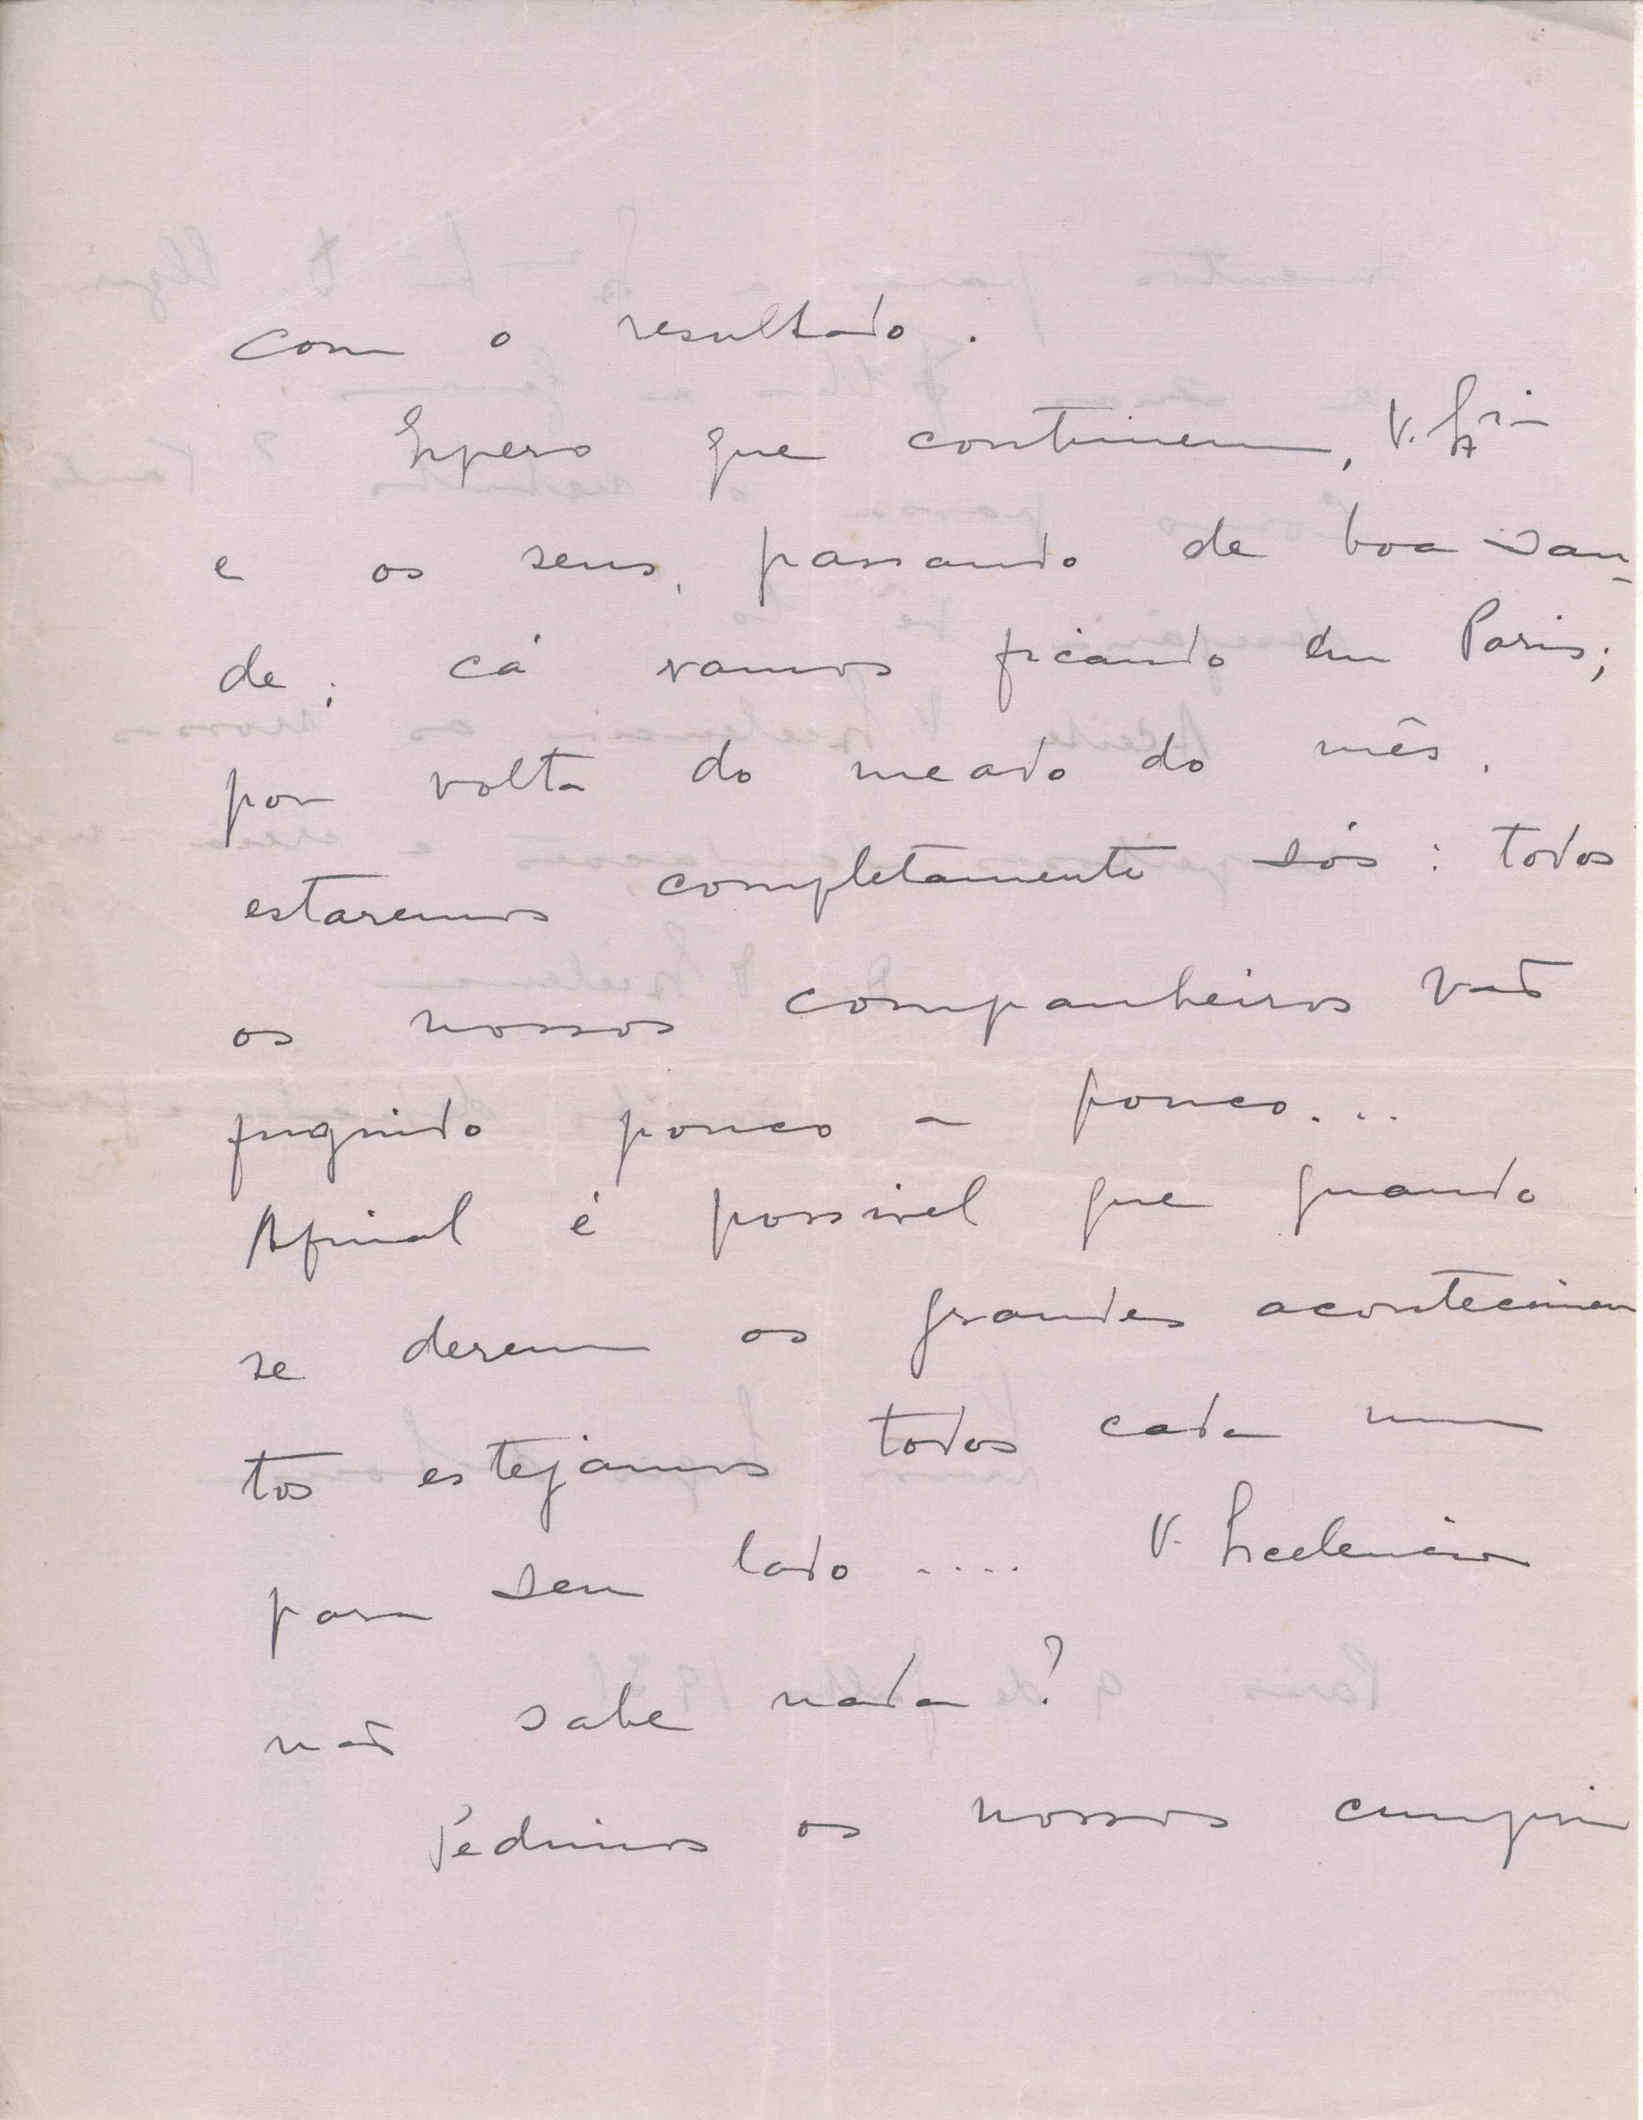 com o resultado.
Espero que continuem, V. Exia
e os seus, passando de boa sau-
de; cá vamos ficando em Paris;
por volta do meado do mês,
estaremos completamente sós: todos
os nossos companheiros vão
fugindo pouco a pouco...
Afinal é possivel que quando
se derem os grandes acontecimen
tos estejâmos todos cada um
para seu lado .... V. Excelencia
não sabe nada?
Pedimos os nossos cumpri